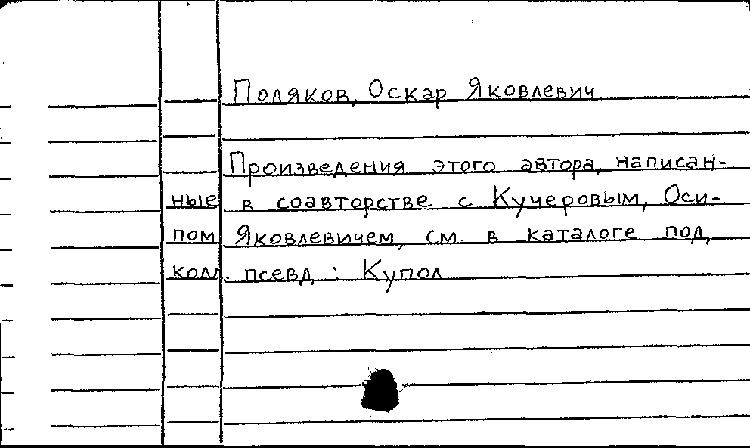 Поляков, Оскар Яковлевич
Произведения этого автора, написан-
ные в соавторстве с Кучеровым, Оси-
пом Яковлевичем, см. в каталоге под
колл. псевд.: Купол